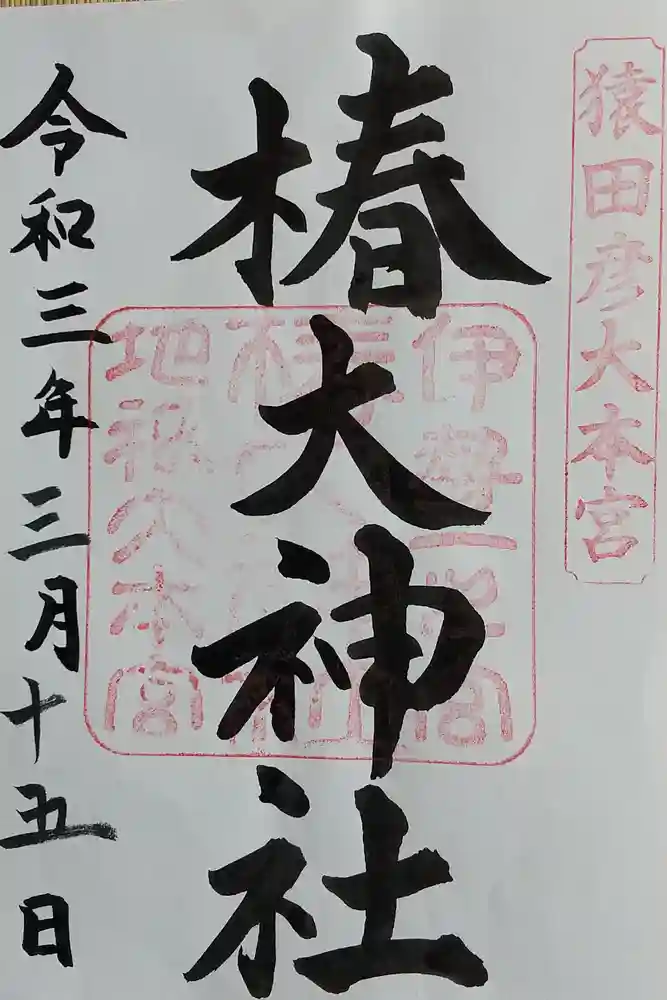 猿田彦大本宮
椿大神社
伊勢一之宮
椿大神社
地祇大本宮
令和三年三月十五日